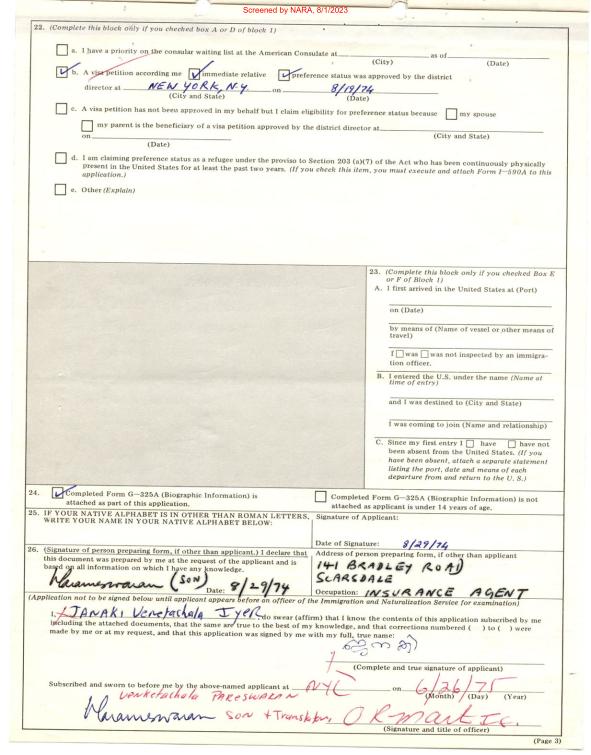 Screened by NARA, 8/1/2023
22. (Complete this block only if you checked box A or D of block 1)
a. I have a priority on the consular waiting list at the American Consulate at as of
(City) (Date)
b. A visa petition according me immediate relative preference status was approved by the district
director at NEW YORK, N.Y. on 8/19/74
(City and State) (Date)
c. A visa petition has not been approved in my behalf but I claim eligibility for preference status because my spouse
my parent is the beneficiary of a visa petition approved by the district director at
on (City and State)
(Date)
d. I am claiming preference status as a refugee under the proviso to Section 203 (a)(7) of the Act who has been continuously physically
present in the United States for at least the past two years. (If you check this item, you must execute and attach Form I-590A to this
application.)
e. Other (Explain)
23. (Complete this block only if you checked Box E
or F of Block 1)
A. I first arrived in the United States at (Port)
on (Date)
by means of (Name of vessel or other means of
travel)
I was was not inspected by an immigra-
tion officer.
B. I entered the U.S. under the name (Name at
time of entry)
and I was destined to (City and State)
I was coming to join (Name and relationship)
C. Since my first entry I have have not
been absent from the United States. (If you
have been absent, attach a separate statement
listing the port, date and means of each
departure from and return to the U.S.)
24. Completed Form G-325A (Biographic Information) is
attached as part of this application.
Completed Form G-325A (Biographic Information) is not
attached as applicant is under 14 years of age.
25. IF YOUR NATIVE ALPHABET IS IN OTHER THAN ROMAN LETTERS,
WRITE YOUR NAME IN YOUR NATIVE ALPHABET BELOW:
Signature of Applicant:
Date of Signature: 8/29/74
26. (Signature of person preparing form, if other than applicant.) I declare that
this document was prepared by me at the request of the applicant and is
based on all information on which I have any knowledge.
Parameswaran (SON) Date: 8/29/74
Address of person preparing form, if other than applicant
141 BRADLEY ROAD
SCARSDALE
Occupation: INSURANCE AGENT
(Application not to be signed below until applicant appears before an officer of the Immigration and Naturalization Service for examination)
I, JANAKI Venetachala Iyer do swear (affirm) that I know the contents of this application subscribed by me
including the attached documents, that the same are true to the best of my knowledge, and that corrections numbered ( ) to ( ) were
made by me or at my request, and that this application was signed by me with my full, true name:
ജാനകി
(Complete and true signature of applicant)
Subscribed and sworn to before me by the above-named applicant at NYC on 6/26/75
(Month) (Day) (Year)
VENKETACHALA PARESWARAN
Parameswaran SON + Translator,
(Signature and title of officer)
(Page 3)